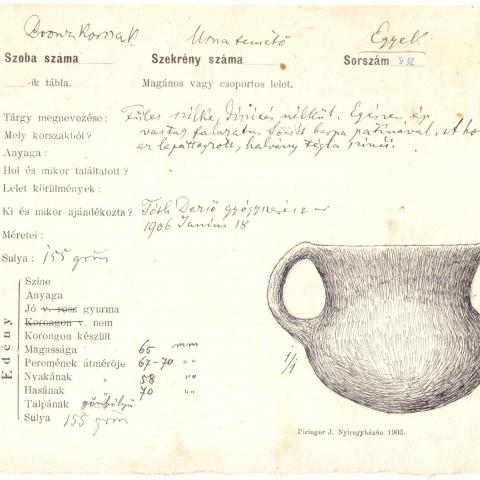 Bronzkorszak Urnatemető Egyek
Szoba száma Szekrény száma Sorszám II 52
-ik tábla. Magános vagy csoportos lelet.
Tárgy megnevezése: Füles szilke, díszités nélkül. Egészen ép
Mely korszakból? vastag falazatu. Sötét barna patinával, A hol
Anyaga: ez lepattogzott, halvány tégla szinü.
Hol és mikor találtatott?
Lelet körülmények:
Ki és mikor ajándékozta? Tóth Dezső gyógyszerész ur
1906 Junius 18
Méretei:
Sulya: 155 grm
Edény
Szine
Anyaga
Jó v. rosz gyurma
Korongon v. nem
Korongon készült
Magassága 65 mm
Peremének átmérője 67-70 "
Nyakának " 58 "
Hasának " 70 "
Talpának gömbölyü
Sulya 155 grm
1/1
Piringer J. Nyiregyházán 1903.